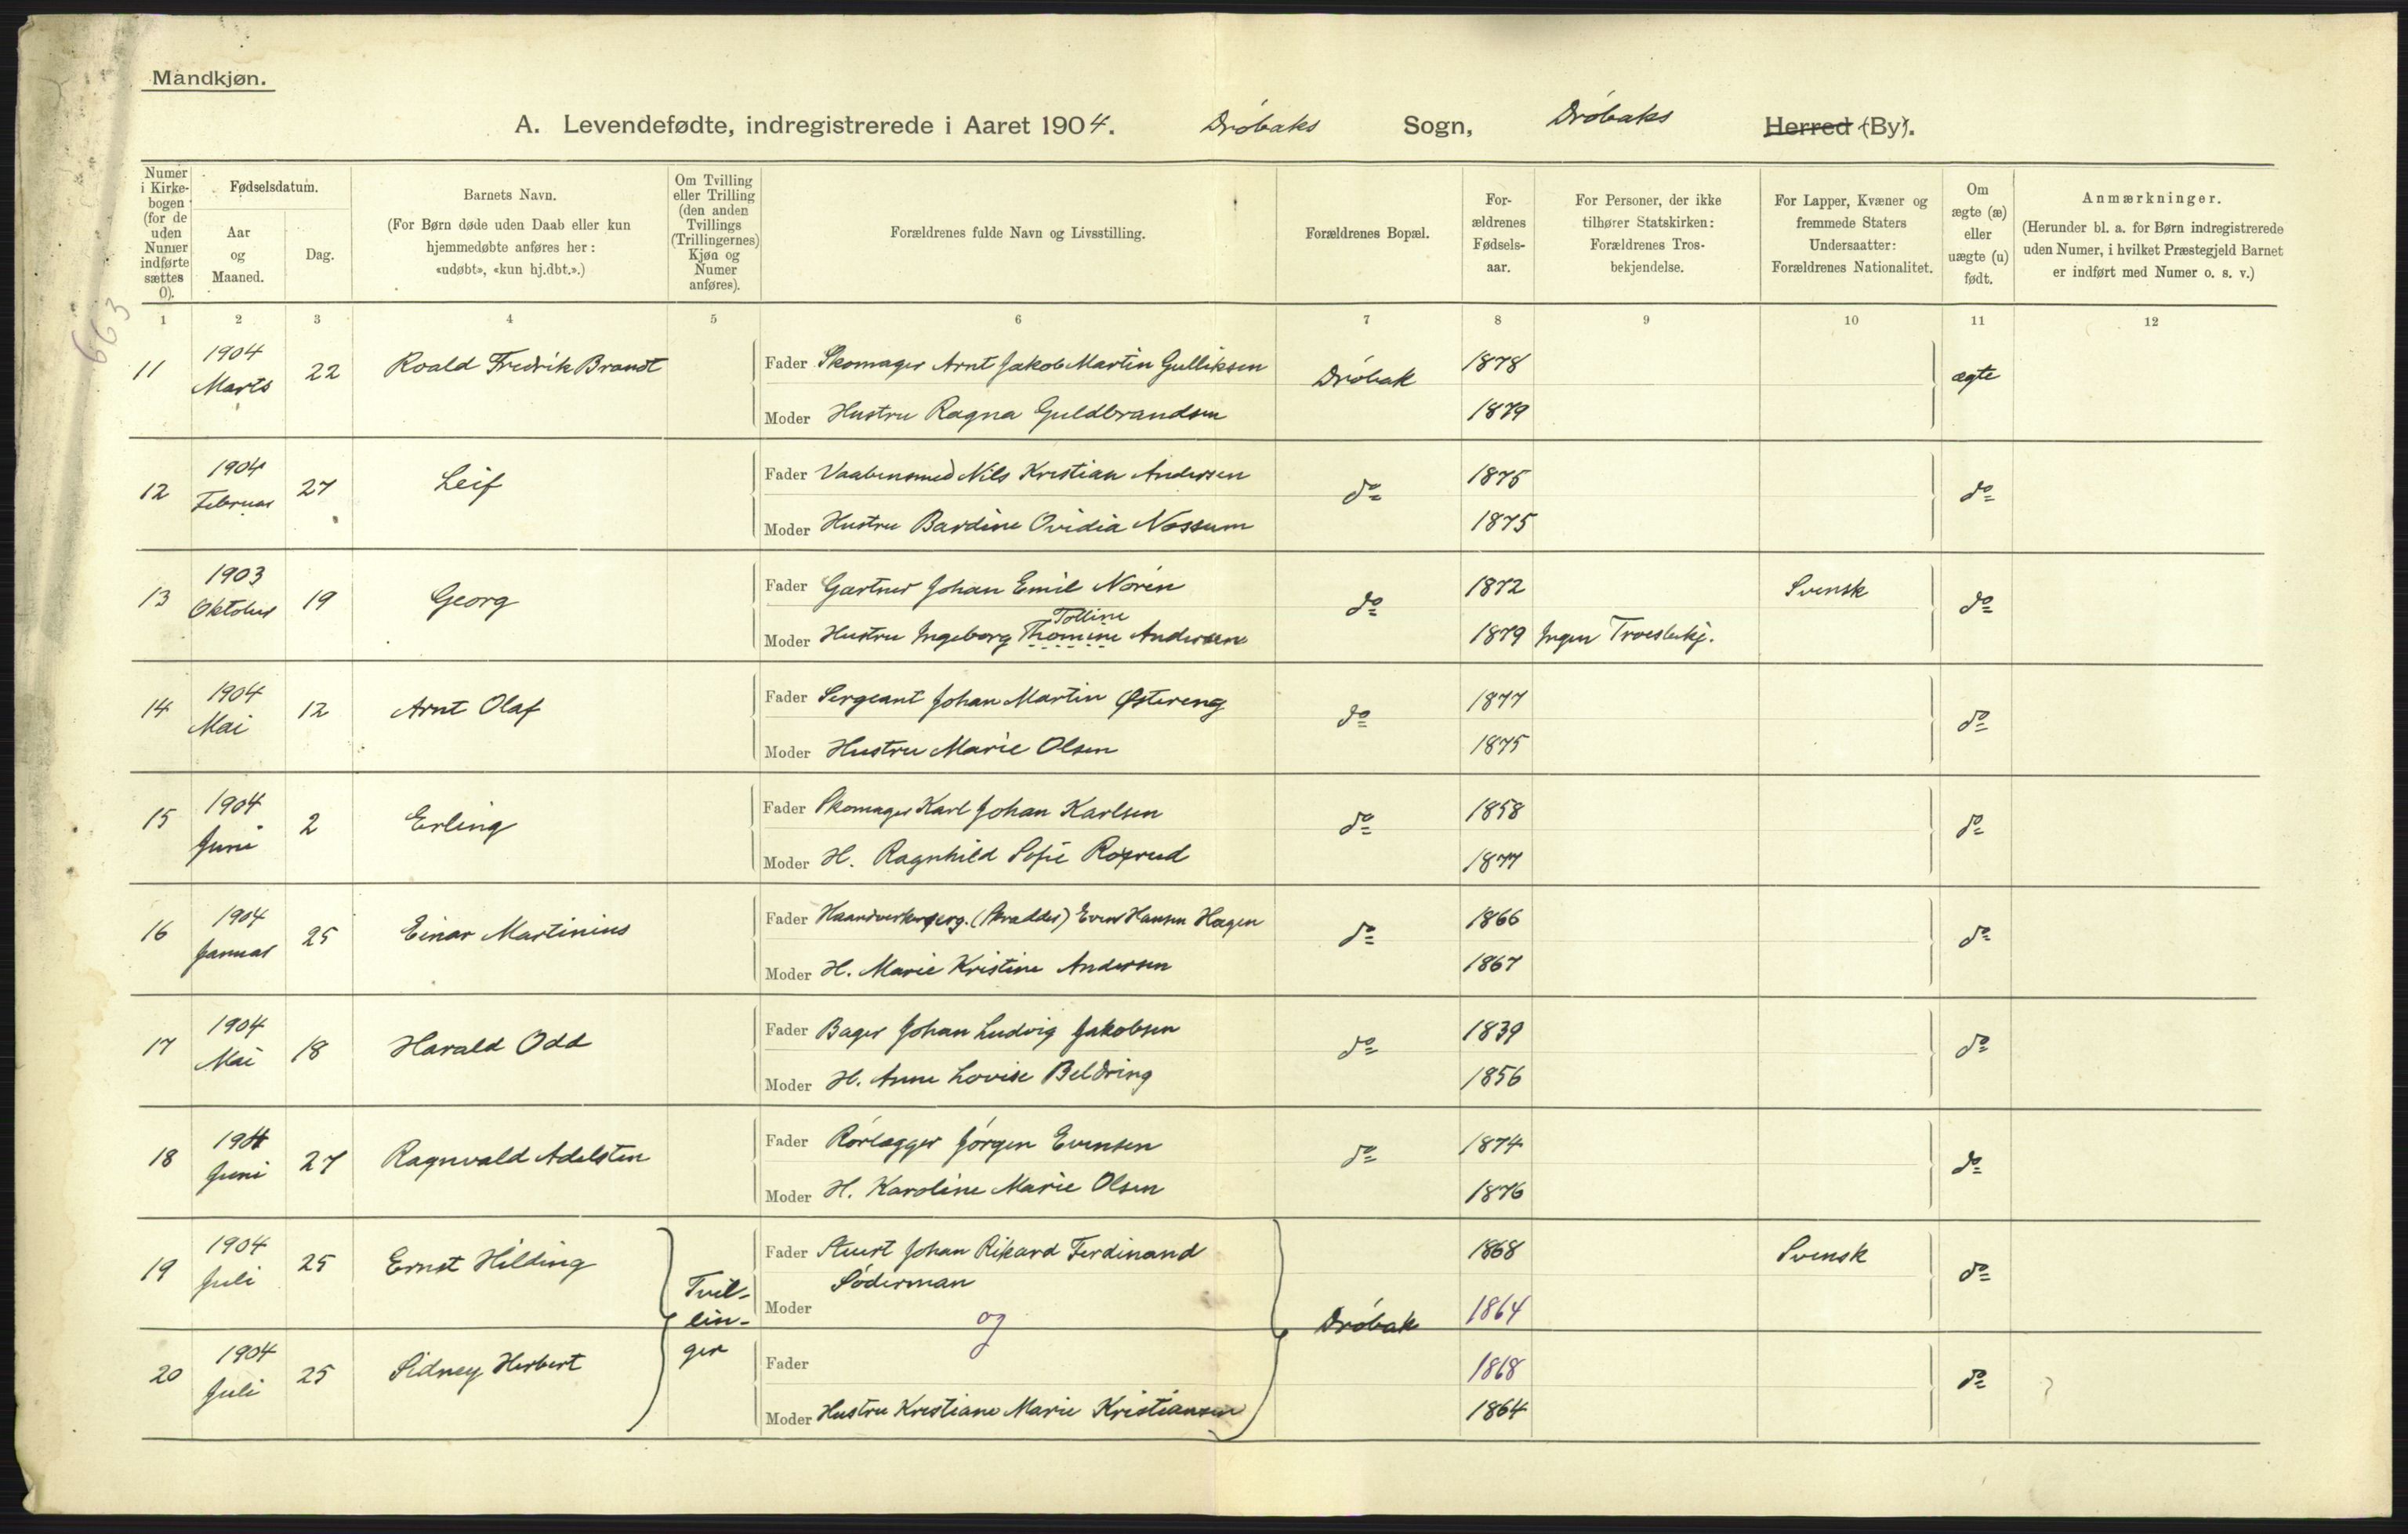 Mandkjøn.
A. Levendefødte, indregistrerede i Aaret 1904. Drøbaks Sogn, Drøbaks Herred (By).
Numer i Kirkebogen (for de uden Numer indførte sættes 0).
Fødselsdatum.
Aar og Maaned.
Dag.
Barnets Navn.
(For Børn døde uden Daab eller kun hjemmedøbte anføres her: «udøbt», «kun hj.dbt.».)
Om Tvilling eller Trilling (den anden Tvillings (Trillingernes) Kjøn og Numer anføres).
Forældrenes fulde Navn og Livsstilling.
Forældrenes Bopæl.
For-ældrenes Fødsels-aar.
For Personer, der ikke tilhører Statskirken: Forældrenes Tros-bekjendelse.
For Lapper, Kvæner og fremmede Staters Undersaatter: Forældrenes Nationalitet.
Om ægte (æ) eller uægte (u) født.
Anmærkninger.
(Herunder bl. a. for Børn indregistrerede uden Numer, i hvilket Præstegjeld Barnet er indført med Numer o. s. v.)
1 2 3 4 5 6 7 8 9 10 11 12
663
11 1904 Marts 22 Roald Fredrik Brandt Fader Skomager Arnt Jakob Martin Gulliksen Drøbak 1878 ægte
Moder Hustru Ragna Guldbrandsen 1879
12 1904 Februar 27 Leif Fader Vaabensmed Nils Kristian Andersen do 1875 do
Moder Hustru Bardine Ovidia Nossum 1875
13 1903 Oktober 19 Georg Fader Gartner Johan Emil Norén do 1872 Svensk do
Tolline
Moder Hustru Ingeborg Thomine Andersen 1879 Ingen Troesbekj.
14 1904 Mai 12 Arnt Olaf Fader Sergeant Johan Martin Østereng do 1877 do
Moder Hustru Marie Olsen 1875
15 1904 Juni 2 Erling Fader Skomager Karl Johan Karlsen do 1858 do
Moder H. Ragnhild Sofie 1877
16 1904 Januar 25 Einar Martinius Fader Haandverkerserg. (Skrædder) Even Hansen Hagen do 1866 do
Moder H. Marie Kristine Andersen 1867
17 1904 Mai 18 Harald Odd Fader Bager Johan Ludvig Jakobsen do 1839 do
Moder H. Anne Lovise Beldring 1856
18 1904 Juni 27 Ragnvald Adelsten Fader Rørlægger Jørgen Evensen do 1874 do
Moder H. Karoline Marie Olsen 1876
19 1904 Juli 25 Ernst Hilding Tvil-lin-ger Fader Stuert Johan Rikard Ferdinand 1868 Svensk do
Søderman
Moder og Drøbak 1864
20 1904 Juli 25 Sidney Herbert Fader 1868 do
Moder Hustru Kristiane Marie Kristiansen 1864